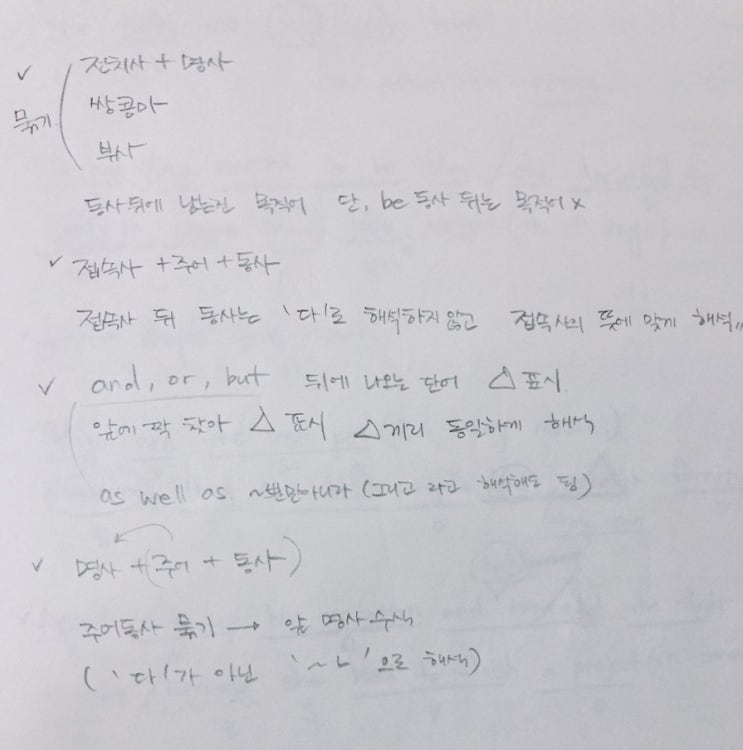 ✓ 전치사 + 명사
묶기 쌍콤마
부사
동사뒤에 남는건 목적어 단, be 동사 뒤는 목적어 x
✓ 접속사 + 주어 + 동사
접속사 뒤 동사는 '다'로 해석하지 않고 접속사의 뜻에 맞게 해석〃
✓ and, or, but 뒤에 나오는 단어 △ 표시
앞에 짝 찾아 △ 표시 △끼리 동일하게 해석
as well as ~뿐만아니라 (그리고 라고 해석해도 됨)
✓ 명사 + (주어 + 동사)
주어동사 묶기 → 앞 명사 수식
( '다'가 아닌 '~ㄴ'으로 해석)